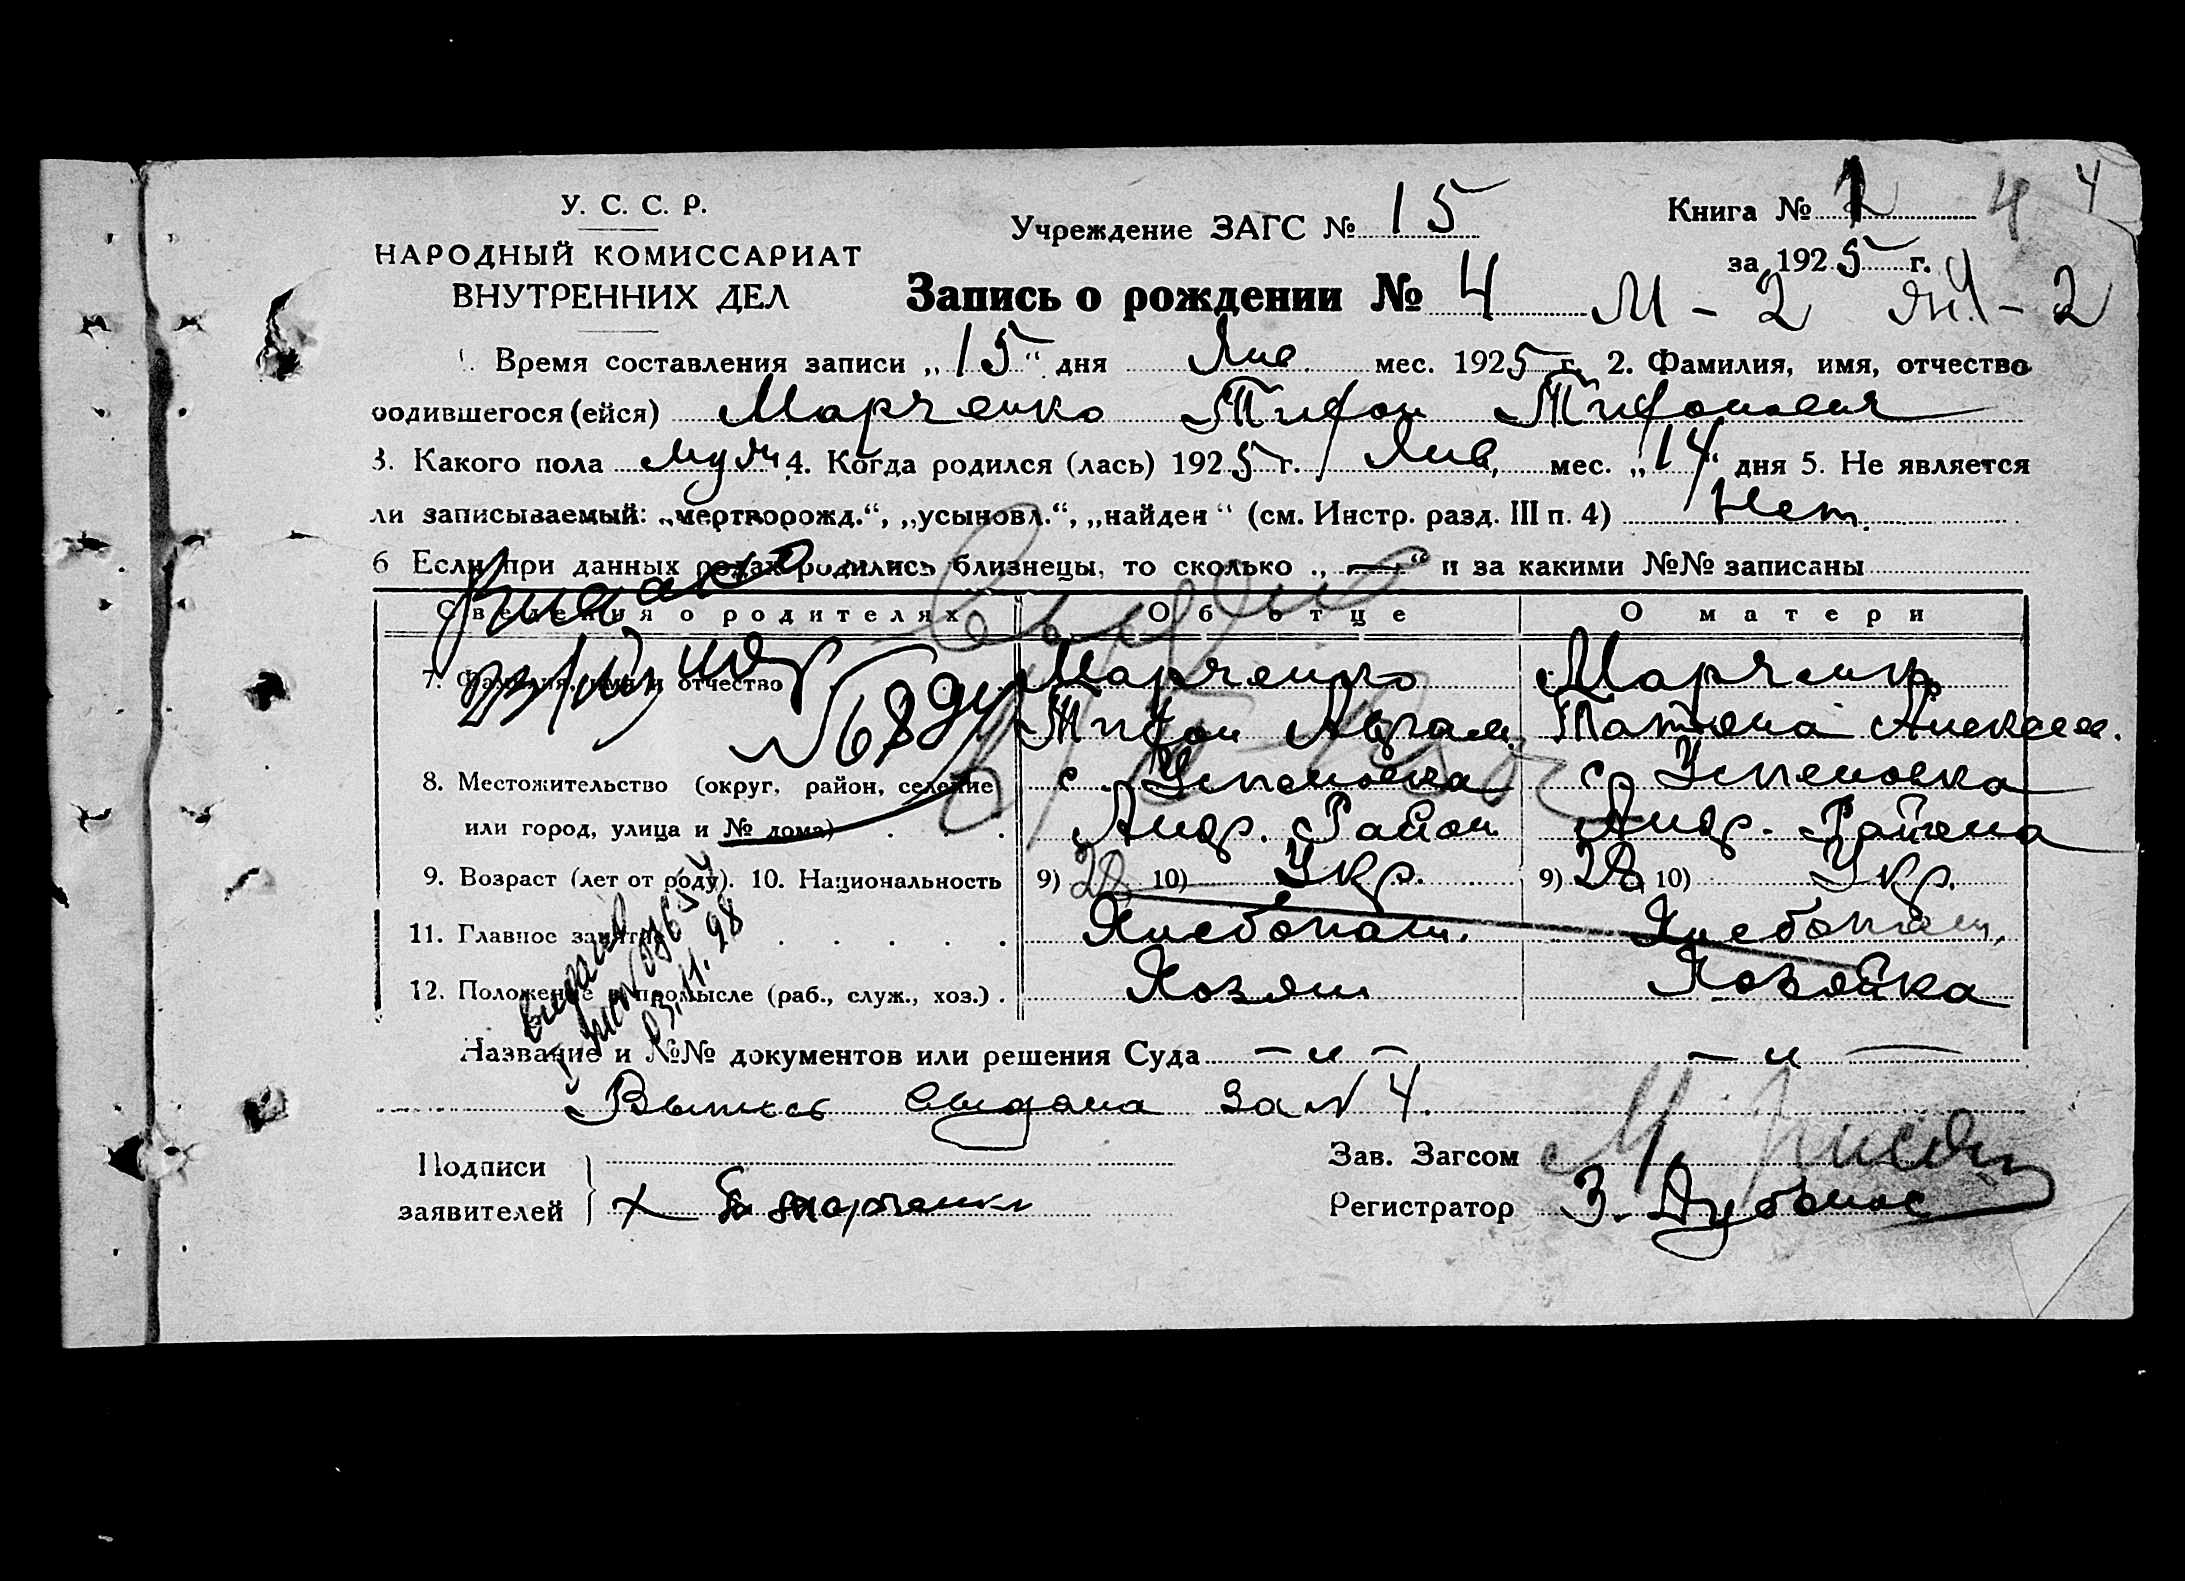 У. С. С. Р.
НАРОДНЫЙ КОМИССАРИАТ
ВНУТРЕННИХ ДЕЛ
Учреждение ЗАГС № 15
Книга № 4 4
за 1925 г.
Запись о рождении № 4 М - 2 - 2
Время составления записи „15“ дня Янв мес. 1925 г. 2. Фамилия, имя, отчество
родившегося (ейся) Марченко Тифон Тифонович
3. Какого пола муж 4. Когда родился (лась) 1925 г. Янв. мес. „14“ дня 5. Не является
ли записываемый: „мертворожд.“, „усыновл.“, „найден“ (см. Инстр. разд. III п. 4) Нет.
6 Если при данных родах родились близнецы, то сколько „—“ и за какими №№ записаны
Сведения о родителях Об отце О матери
7. Фамилия, имя и отчество Марченко Марченко
Тифон Авраам. Татяна Алексее.
8. Местожительство (округ, район, селение с. Успеновка с. Успеновка
или город, улица и № дома) Андр. Район Андр. Района
9. Возраст (лет от роду). 10. Национальность 9) 28 10) Укр. 9) 28 10) Укр.
11. Главное занятие Хлебопаш. Хлебопаш.
12. Положение в промысле (раб., служ., хоз.) Хозяин Хозяйка
03.11.98
Название и №№ документов или решения Суда — „ — — „ —
Выпись выдана за № 4.
Подписи
заявителей Марченко
Зав. Загсом М.
Регистратор З.